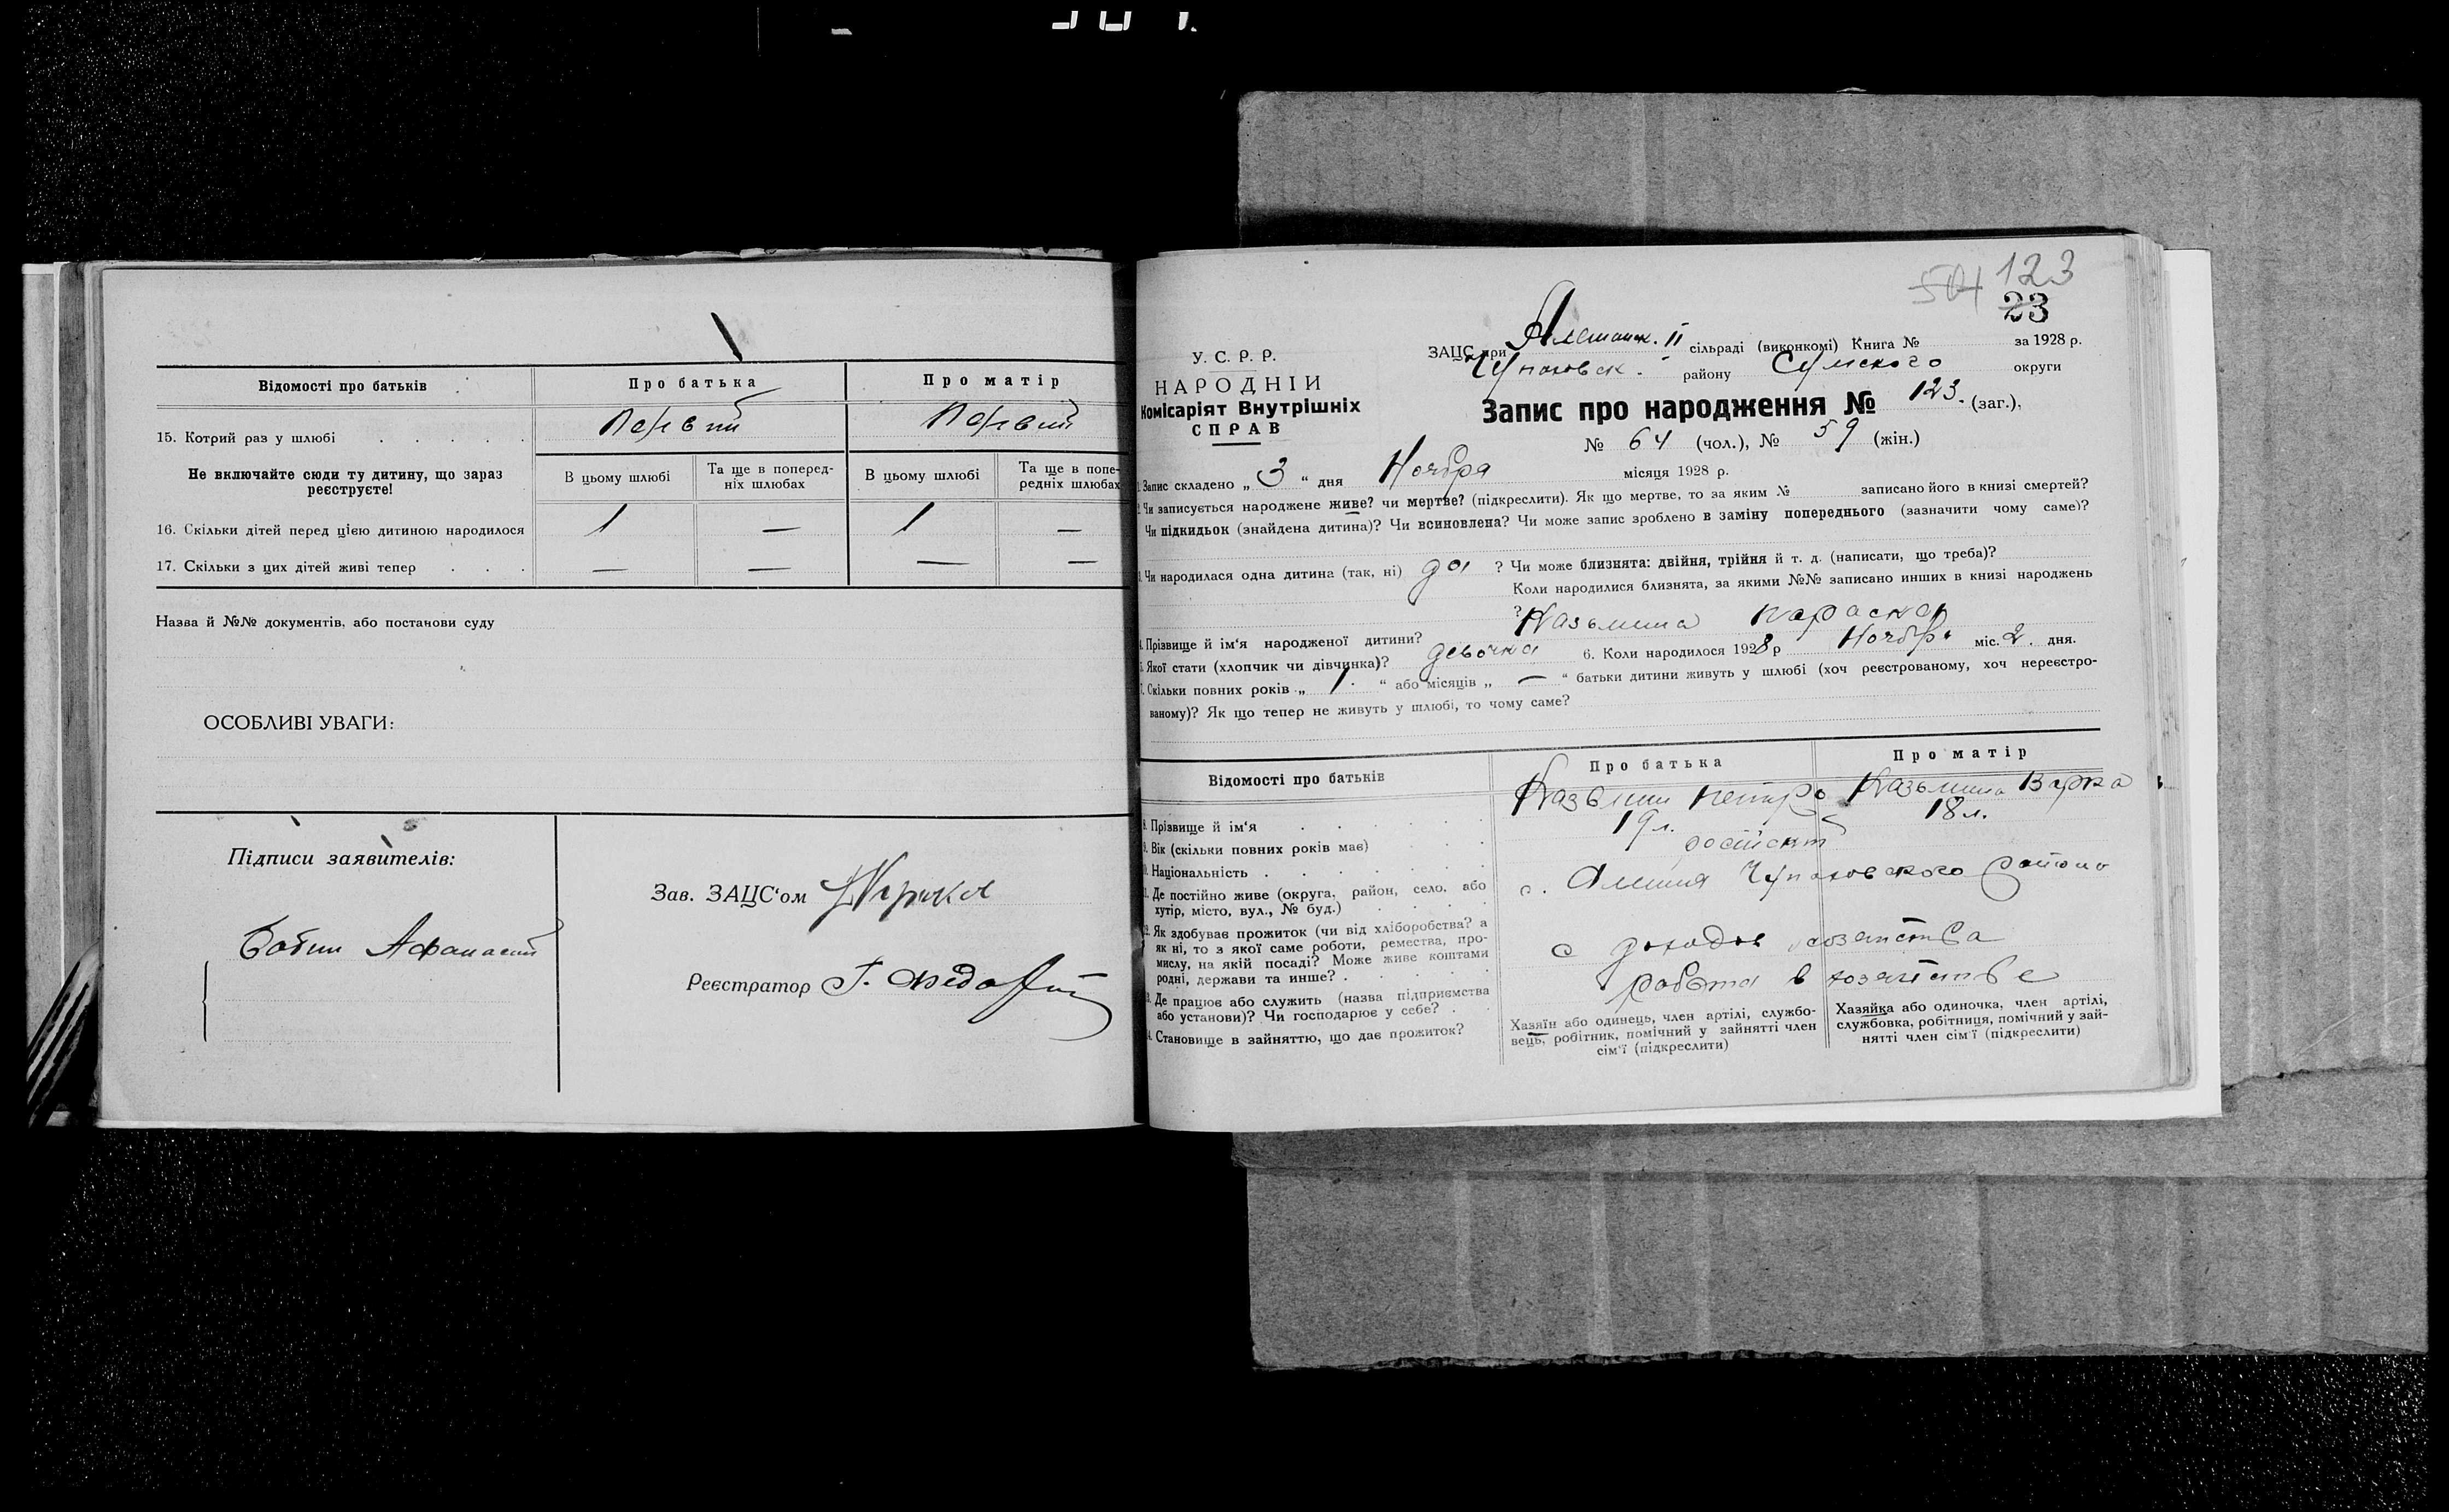 Відомості про батьків
Про батька
Про матір
15. Котрий раз у шлюбі . . . . .
Первий
Первий
Не включайте сюди ту дитину, що зараз
реєструєте!
В цьому шлюбі
Та ще в поперед-
ніх шлюбах
В цьому шлюбі
Та ще в попе-
редніх шлюбах
16. Скільки дітей перед цією дитиною народилося
1 — 1 —
17. Скільки з цих дітей живі тепер . . .
— — — —
Назва й №№ документів, або постанови суду
ОСОБЛИВІ УВАГИ:
Підписи заявителів:
Бабин Афанасий
Зав. ЗАЦС'ом
Реєстратор Г.
504 123
23
У. С. Р. Р.
НАРОДНІЙ
Комісаріят Внутрішніх
СПРАВ
ЗАЦС при Алешанск. II сільраді (виконкомі) Книга № за 1928 р.
Чупаховск. району Сумского округи
Запис про народження № 123. (заг.),
№ 64 (чол.), № 59 (жін.)
1. Запис складено „ 3 “ дня Ноября місяця 1928 р.
2. Чи записується народжене живе? чи мертве? (підкреслити). Як що мертве, то за яким № записано його в книзі смертей?
Чи підкидьок (знайдена дитина)? Чи всиновлена? Чи може запис зроблено в заміну попереднього (зазначити чому саме)?
3. Чи народилася одна дитина (так, ні) да ? Чи може близнята: двійня, трійня й т. д. (написати, що треба)?
Коли народилися близнята, за якими №№ записано инших в книзі народжень
?
4. Прізвище й ім'я народженої дитини? Казьмина Параска
5. Якої стати (хлопчик чи дівчинка)? девочка 6. Коли народилося 1928 р Ноября міс. 2. дня.
7. Скільки повних років „ 1. “ або місяців „ — “ батьки дитини живуть у шлюбі (хоч реєстрованому, хоч нереєстро-
ваному)? Як що тепер не живуть у шлюбі, то чому саме?
Відомості про батьків
Про батька
Про матір
8. Прізвище й ім'я . . . . .
Казьмин Петро
Казьмина Варка
9. Вік (скільки повних років має) . . .
19 л.
18 л.
10. Національність . . . . .
11. Де постійно живе (округа, район, село, або
хутір, місто, вул., № буд.) . . . .
с. Алешня Чупаховского района
12. Як здобуває прожиток (чи від хліборобства? а
як ні, то з якої саме роботи, ремества, про-
мислу, на якій посаді? Може живе коштами
родні, держави та инше? . . . . .
с доходов хозяйства
13. Де працює або служить (назва підприємства
або установи)? Чи господарює у себе? . .
работа в хозяйстве
14. Становище в зайняттю, що дає прожиток?
Хазяїн або одинець, член артілі, службо-
вець, робітник, помічний у зайнятті член
сім'ї (підкреслити)
Хазяйка або одиночка, член артілі,
службовка, робітниця, помічний у зай-
нятті член сім'ї (підкреслити)